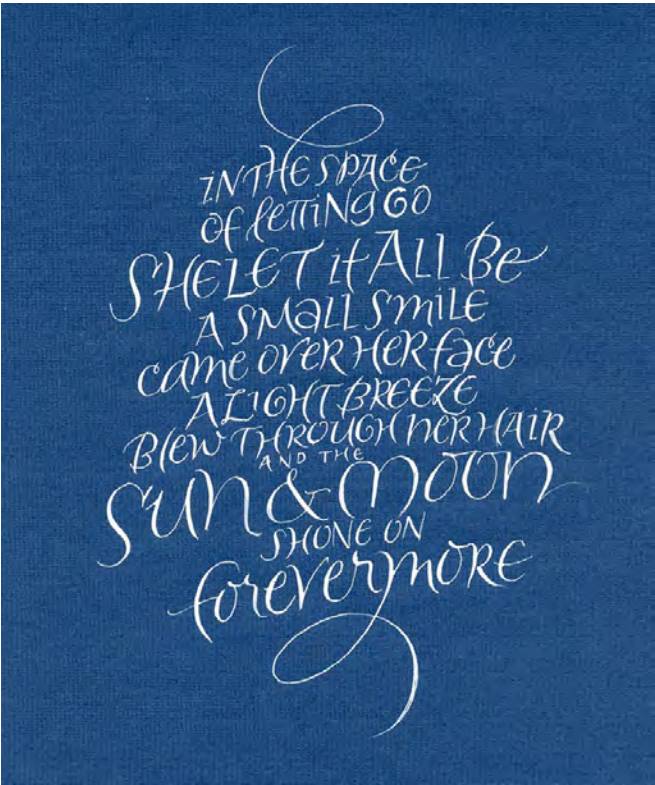 IN THE SPACE
OF LETTING GO
SHE LET it ALL Be
A SMALL SMILE
came OVER HER face
A LIGHT BREEZE
BLEW THROUGH HER HAIR
AND THE
SUN & MOON
SHONE ON
forevermore